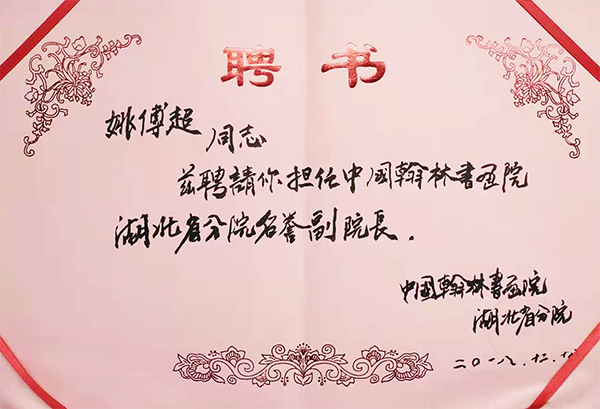 聘书
姚傅超 同志
兹聘請你担任中國翰林書画院
湖北省分院名誉副院長.
中國翰林書画院
湖北省分院
二〇一八.十二.